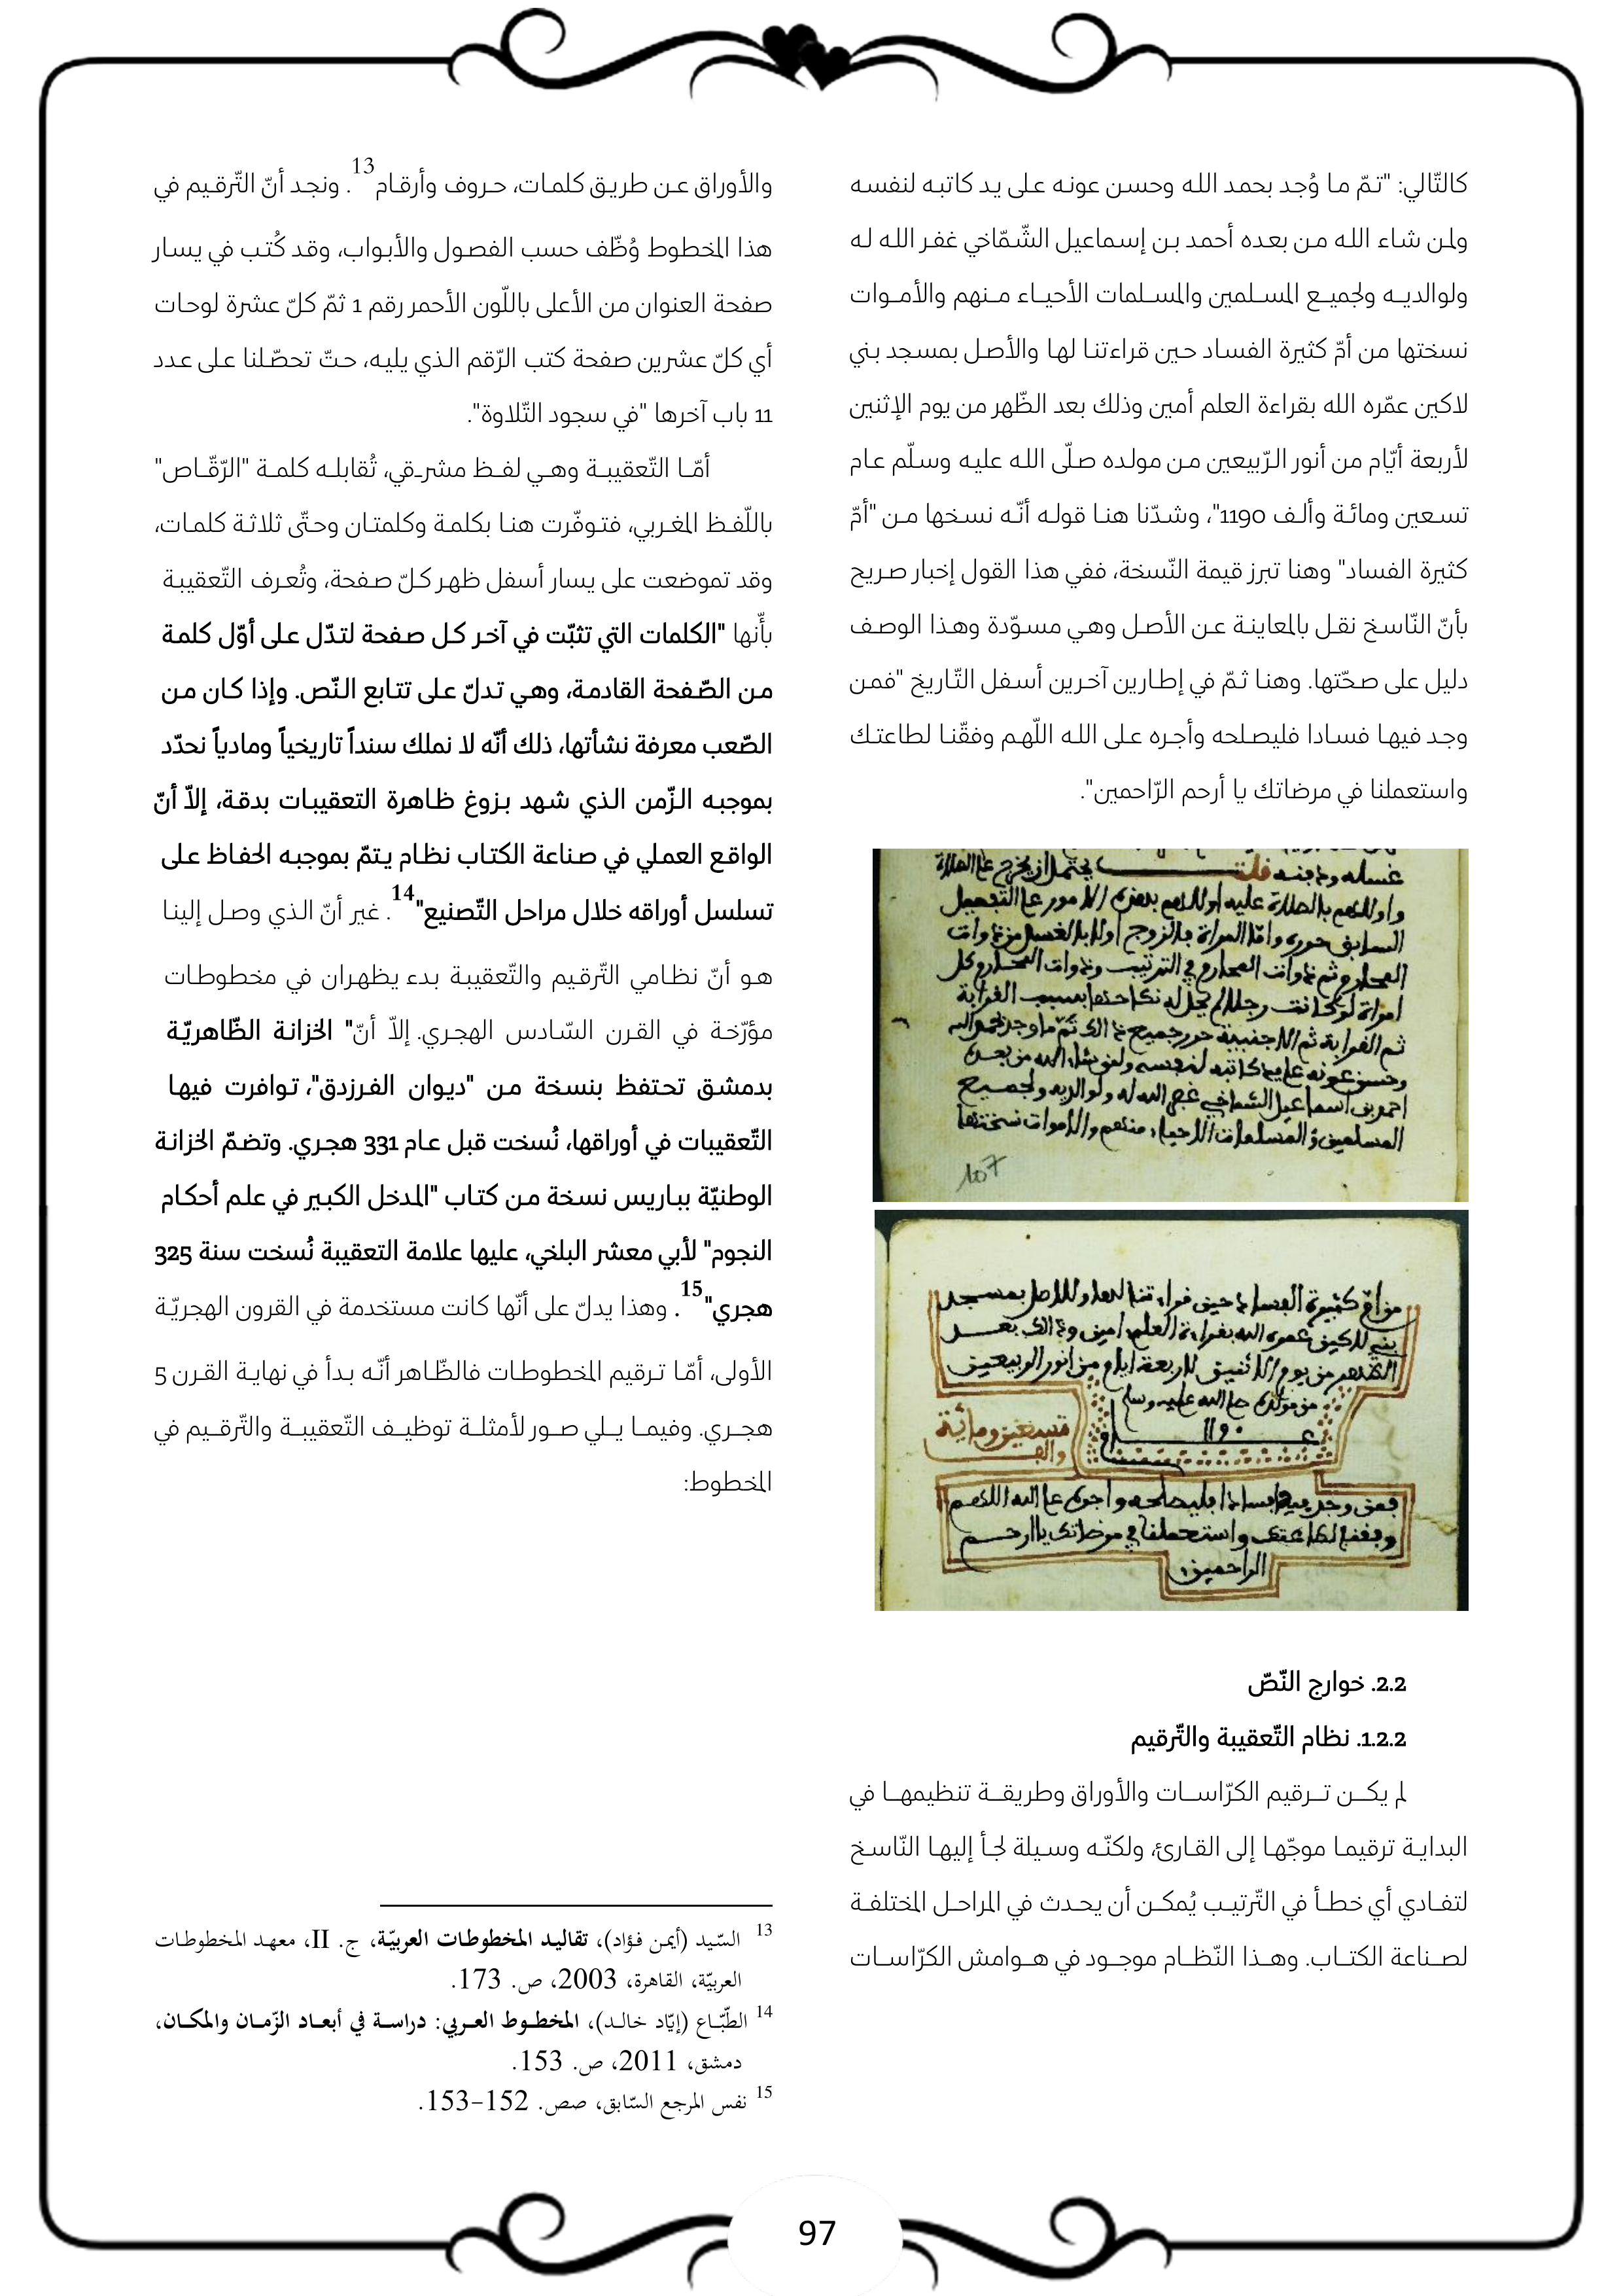 كالتّالي: "تمّ ما وُجد بحمد الله وحسن عونه على يد كاتبه لنفسه
ولمن شاء الله من بعده أحمد بن إسماعيل الشّمّاخي غفر الله له
ولوالديه ولجميع المسلمين والمسلمات الأحياء منهم والأموات
نسختها من أمّ كثيرة الفساد حين قراءتنا لها والأصل بمسجد بني
لاكين عمّره الله بقراءة العلم أمين وذلك بعد الظّهر من يوم الإثنين
لأربعة أيّام من أنور الرّبيعين من مولده صلّى الله عليه وسلّم عام
تسعين ومائة وألف 1190"، وشدّنا هنا قوله أنّه نسخها من "أمّ
كثيرة الفساد" وهنا تبرز قيمة النّسخة، ففي هذا القول إخبار صريح
بأنّ النّاسخ نقل بالمعاينة عن الأصل وهي مسوّدة وهذا الوصف
دليل على صحّتها. وهنا ثمّ في إطارين آخرين أسفل التّاريخ "فمن
وجد فيها فسادا فليصلحه وأجره على الله اللّهم وفقّنا لطاعتك
واستعملنا في مرضاتك يا أرحم الرّاحمين".
غسله ودفنه قلت يحتمل ان يخرج على الصلاة
السابق
ثم القرابة ثم الاجنبية حرر جميع ذالك تم ما وجد بحمد الله
وحسن عونه على يد كاتبه لنفسه ولمن شاء الله من بعده
احمد بن اسماعيل الشماخي غفر الله له ولوالديه ولجميع
المسلمين والمسلمات الاحياء منهم والاموات نسختها
107
من ام كثيرة الفساد حين قراءتنا لها والاصل بمسجد
بني لاكين عمره الله بقراءة العلم امين وذالك بعد
الظهر من يوم الاثنين لاربعة ايام من انور الربيعين
من مولده صلى الله عليه وسلم
عام 1190
تسعين ومائة
والف
فمن وجد فيها فسادا فليصلحه واجره على الله اللهم
وفقنا لطاعتك واستعملنا في مرضاتك يا ارحم
الراحمين
2.2. خوارج النّصّ
1.2.2. نظام التّعقيبة والتّرقيم
لم يكن ترقيم الكرّاسات والأوراق وطريقة تنظيمها في
البداية ترقيما موجّها إلى القارئ، ولكنّه وسيلة لجأ إليها النّاسخ
لتفادي أي خطأ في التّرتيب يُمكن أن يحدث في المراحل المختلفة
لصناعة الكتاب. وهذا النّظام موجود في هوامش الكرّاسات
والأوراق عن طريق كلمات، حروف وأرقام13. ونجد أنّ التّرقيم في
هذا المخطوط وُظّف حسب الفصول والأبواب، وقد كُتب في يسار
صفحة العنوان من الأعلى باللّون الأحمر رقم 1 ثمّ كلّ عشرة لوحات
أي كلّ عشرين صفحة كتب الرّقم الذي يليه، حتّ تحصّلنا على عدد
11 باب آخرها "في سجود التّلاوة".
أمّا التّعقيبة وهي لفظ مشرقي، تُقابله كلمة "الرّقّاص"
باللّفظ المغربي، فتوفّرت هنا بكلمة وكلمتان وحتّى ثلاثة كلمات،
وقد تموضعت على يسار أسفل ظهر كلّ صفحة، وتُعرف التّعقيبة
بأنّها "الكلمات التي تثبّت في آخر كل صفحة لتدّل على أوّل كلمة
من الصّفحة القادمة، وهي تدلّ على تتابع النّص. وإذا كان من
الصّعب معرفة نشأتها، ذلك أنّه لا نملك سنداً تاريخياً ومادياً نحدّد
بموجبه الزّمن الذي شهد بزوغ ظاهرة التعقيبات بدقة، إلاّ أنّ
الواقع العملي في صناعة الكتاب نظام يتمّ بموجبه الحفاظ على
تسلسل أوراقه خلال مراحل التّصنيع"14. غير أنّ الذي وصل إلينا
هو أنّ نظامي التّرقيم والتّعقيبة بدء يظهران في مخطوطات
مؤرّخة في القرن السّادس الهجري. إلاّ أنّ" الخزانة الظّاهريّة
بدمشق تحتفظ بنسخة من "ديوان الفرزدق"، توافرت فيها
التّعقيبات في أوراقها، نُسخت قبل عام 331 هجري. وتضمّ الخزانة
الوطنيّة بباريس نسخة من كتاب "المدخل الكبير في علم أحكام
النجوم" لأبي معشر البلخي، عليها علامة التعقيبة نُسخت سنة 325
هجري"15. وهذا يدلّ على أنّها كانت مستخدمة في القرون الهجريّة
الأولى، أمّا ترقيم المخطوطات فالظّاهر أنّه بدأ في نهاية القرن 5
هجري. وفيما يلي صور لأمثلة توظيف التّعقيبة والتّرقيم في
المخطوط:
13 السّيد (أيمن فؤاد)، تقاليد المخطوطات العربيّة، ج. II، معهد المخطوطات
العربيّة، القاهرة، 2003، ص. 173.
14 الطّبّاع (إيّاد خالد)، المخطوط العربي: دراسة في أبعاد الزّمان والمكان،
دمشق، 2011، ص. 153.
15 نفس المرجع السّابق، صص. 152-153.
97